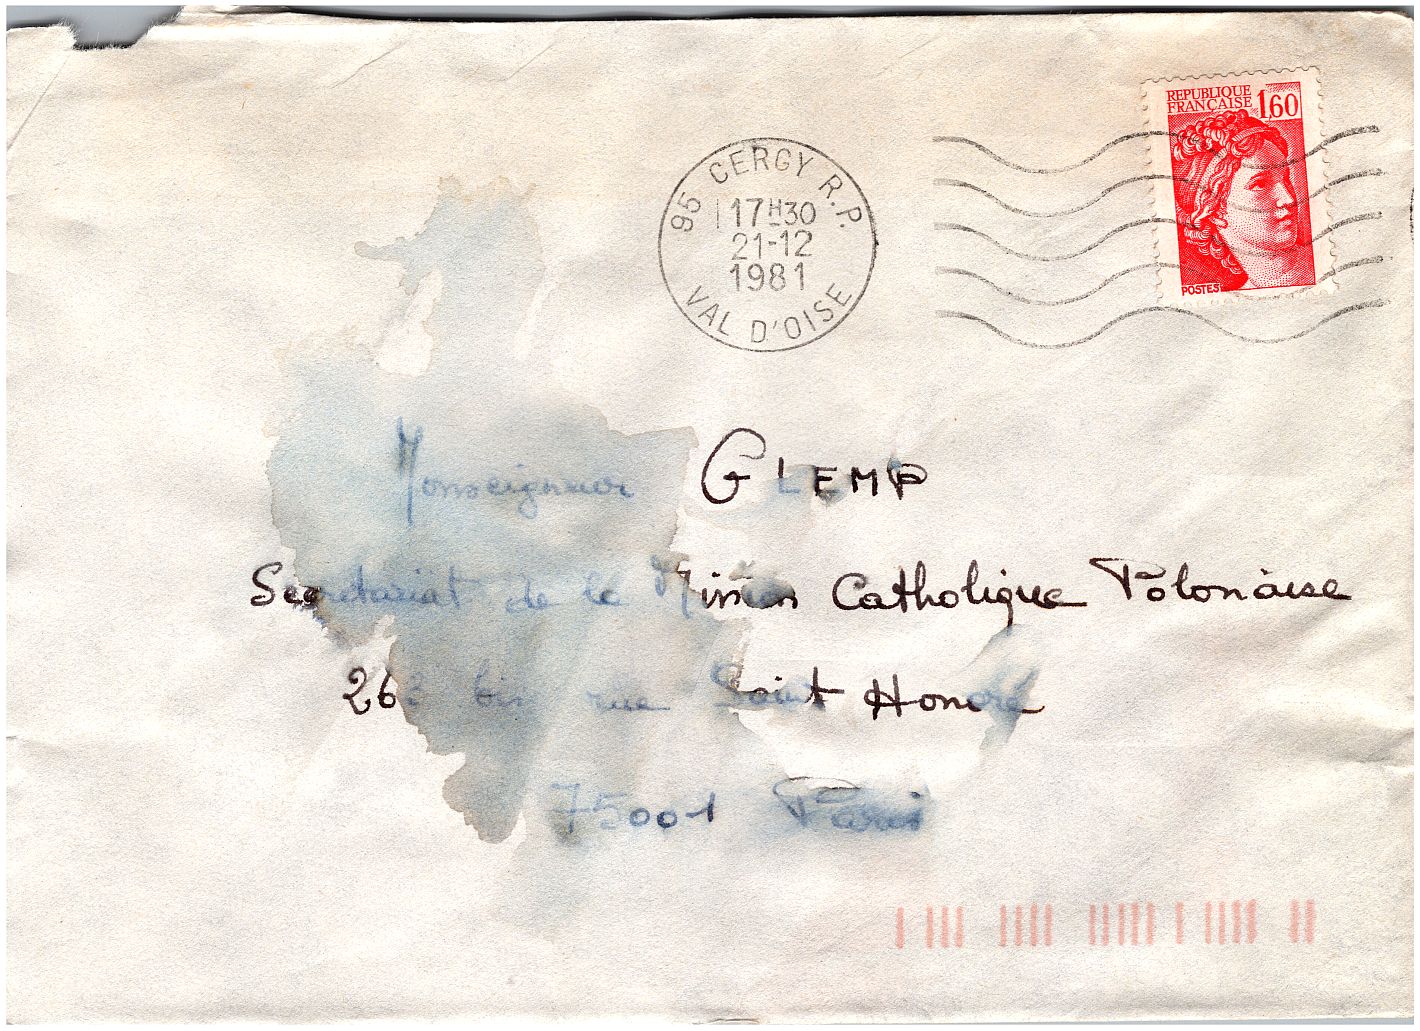 REPUBLIQUE
FRANÇAISE 1,60
POSTES
95 CERGY R.P.
17H30
21-12
1981
VAL D'OISE
Monseigneur GLEMP
Secretariat de la Mission Catholique Polonaise
263 bis rue Saint Honoré
75001 Paris